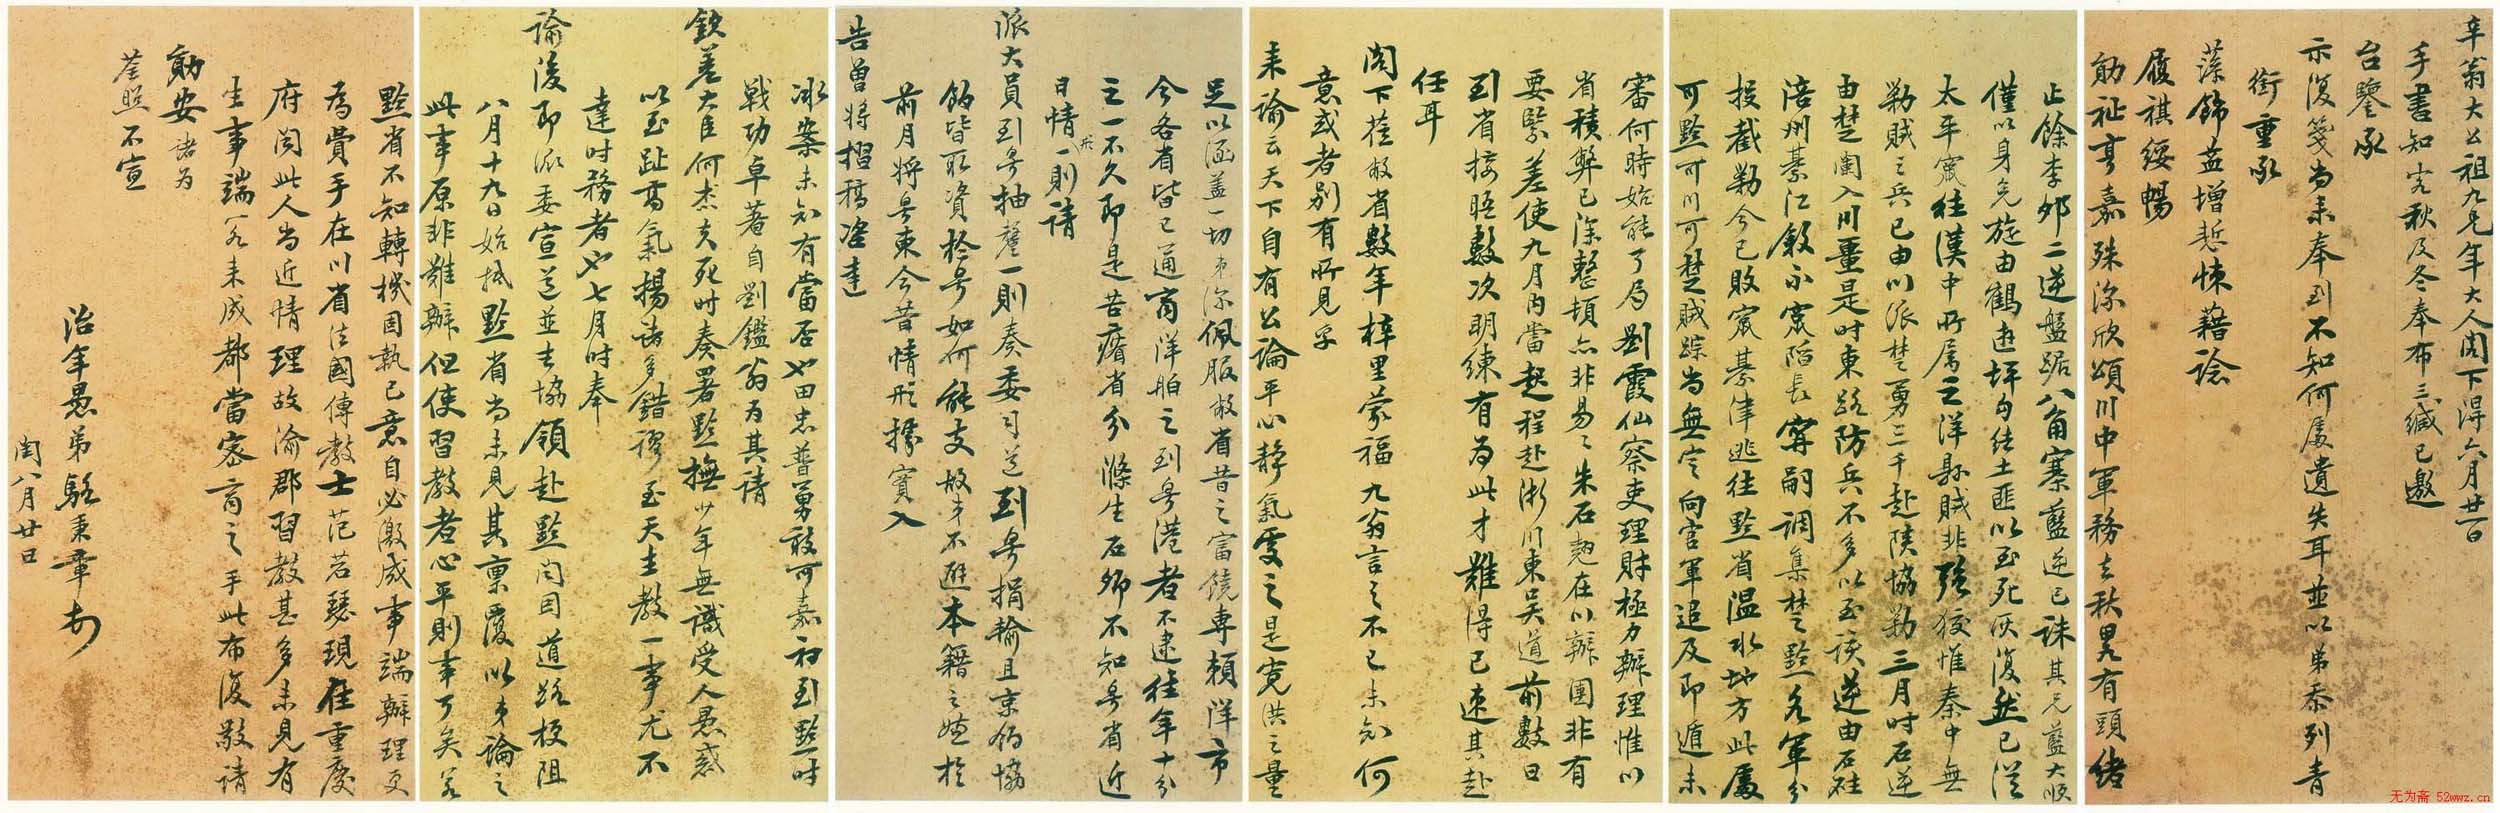 辛翁大公祖九兄年大人阁下得六月廿一日
手書知客秋及冬奉布三缄已邀
台鑒承
示復箋尚未奉到不知何處遺失耳並以弟忝列青
銜重承
藻飾益增慙悚藉諗
履祺綏暢
勛祉亨嘉殊深欣頌川中軍務去秋畧有頭緒
止餘李郊二逆盤踞八角寨藍逆已誅其兄藍大順
僅以身免旋由鶴遊坪勾結土匪以至死灰復然已從
太平竄往漢中所属之洋縣賊非强狡惟秦中無
勦賊之兵已由川派楚勇三千赴陕協勦三月時石逆
由楚闌入川疆是時東路防兵不多以至该逆由石砫
涪州綦江叙永竄陷長寧嗣調集楚黔各軍分
投截勦今已敗竄綦津逃往黔省温水地方此處
可黔可川可楚賊踪尚無定向官軍追及即遁未
審何時始能了局劉霞仙察吏理財極力辦理惟以
省積弊已深整頓亦非易々朱石翘在川辦團非有
要緊差使九月内當起程赴浙川東吴道前數日
到省接晤數次明練有為此才難得已速其赴
任耳
阁下莅敝省數年梓里蒙福九翁言之不已未知何
意或者别有所見乎
来諭云天下自有公論平心靜氣受之是寬洪之量
足以涵蓋一切弟深佩服敝省昔之富饒專賴洋市
今各省皆已通商洋舶之到粤港者不逮往年十分
之一不久即是苦瘠省分滌生石卿不知粤省近
日情形一則請
派大員到粤抽釐一則奏委司道到粤捐输且京餉協
餉皆取資於粤如何能支故弟不避本籍之嫌於
前月將粤東今昔情形據實入
告曾將摺稿咨達
冰案未知有當否也田忠普勇敢可嘉初到黔時
戰功卓著自劉鑑翁为其請
欽差大臣何杰夫死时奏署黔撫少年無識受人愚惑
以至趾高氣揚诸多錯謬至天主教一事尤不
達时務者也七月时奉
諭後即派委宣道並吉協領赴黔闻因道路梗阻
八月十九日始抵黔省尚未見其禀覆以弟論之
此事原非難辦但使習教者心平則事了矣若
黔省不知轉機固執己意自必激成事端辦理更
為費手在川省法國傳教士范若瑟現在重慶
府闻此人尚近情理故渝郡習教甚多未見有
生事端一名未成都當密商之手此布復敬請
勛安诸为
荃照不宣
治年愚弟駱秉章頓
閏八月廿日
无为斋 52wwz.cn